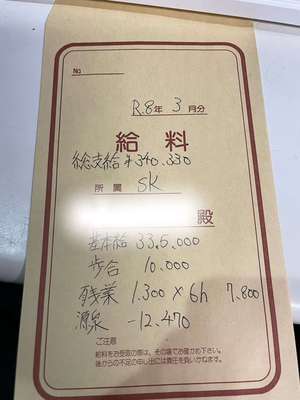 No
R.8年 3月分
給料
総支給 ¥340.330
所属 SK
殿
基本給 335,000
歩合 10.000
残業 1.300 × 6h 7,800
源泉 -12.470
ご注意
給料をお受取の際は、その場でお確かめ下さい。
後からの不足の申し出には責任を負いかねます。